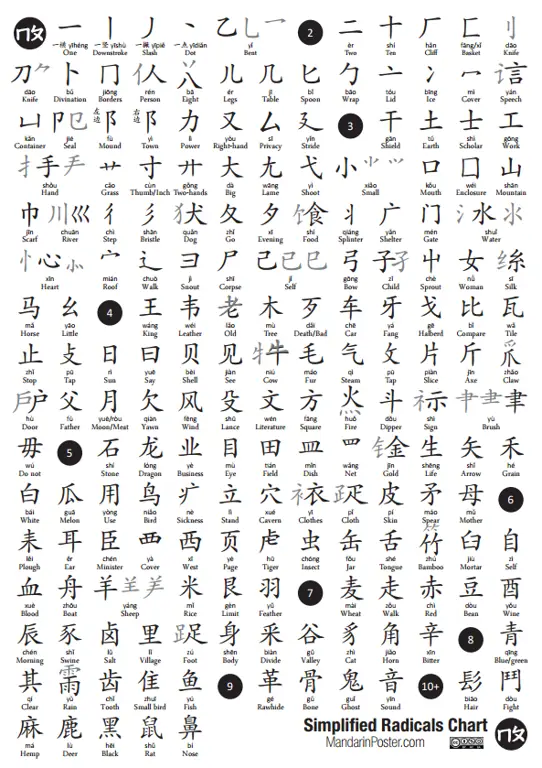 一 丨 丿 丶 乙 乚 乛 2 二 十 厂 匚 刂
一横 yīhéng 一竖 yīshù 一撇 yīpiě 一点 yīdiǎn yǐ èr shí hǎn fāng/xǐ dāo
One Downstroke Slash Dot Bent Two Ten Cliff Basket Knife
刀 ⺈ 卜 冂 亻 人 丷 八 儿 几 匕 勹 亠 冫 冖 讠 言
dāo bǔ jiōng rén bā ér jī bǐ bāo tóu bīng mì yán
Knife Divination Borders Person Eight Legs Table Spoon Wrap Lid Ice Cover Speech
凵 卩 㔾 左边 阝 右边 阝 力 又 厶 廴 3 干 土 士 工
kǎn jié fù yì lì yòu sī yǐn gān tǔ shì gōng
Container Seal Mound Town Power Right-hand Privacy Stride Shield Earth Scholar Work
扌 手 龵 艹 寸 廾 大 尢 弋 小 ⺌ 口 囗 山
shǒu cǎo cùn gǒng dà wāng yì xiǎo kǒu wéi shān
Hand Grass Thumb/Inch Two-hands Big Lame Shoot Small Mouth Enclosure Mountain
巾 川 巛 彳 彡 犭 犬 夂 夕 饣 食 丬 广 门 氵 水 氺
jīn chuān chì shān quǎn zhǐ xī shí qiáng yǎn mén shuǐ
Scarf River Step Bristle Dog Go Evening Food Splinter Shelter Gate Water
忄 心 ⺗ 宀 辶 彐 尸 己 已 巳 弓 子 孑 屮 女 纟 糸
xīn mián chuò jì shī jǐ gōng zǐ chè nǚ sī
Heart Roof Walk Snout Corpse Self Bow Child Sprout Woman Silk
马 幺 4 王 韦 老 木 歹 车 牙 戈 比 瓦
mǎ yāo wáng wéi lǎo mù dǎi chē yá gē bǐ wǎ
Horse Little King Leather Old Tree Death/Bad Car Fang Halberd Compare Tile
止 攴 日 曰 贝 见 牜 牛 毛 气 攵 片 斤 爫 爪
zhǐ pū rì yuē bèi jiàn niú máo qì pū piàn jīn zhǎo
Stop Tap Sun Say Shell See Cow Fur Steam Tap Slice Axe Claw
戶 户 父 月 欠 风 殳 文 方 灬 火 斗 礻 示 聿
hù fù yuè/ròu qiàn fēng shū wén fāng huǒ dǒu shì yù
Door Father Moon/Meat Yawn Wind Lance Literature Square Fire Dipper Sign Brush
毋 5 石 龙 业 目 田 皿 罒 钅 金 生 矢 禾
wú shí lóng yè mù tián mǐn wǎng jīn shēng shǐ hé
Do not Stone Dragon Business Eye Field Dish Net Gold Life Arrow Grain
白 瓜 用 鸟 疒 立 穴 衤 衣 疋 皮 矛 母 6
bái guā yòng niǎo nè lì xué yī pǐ pí máo mǔ
White Melon Use Bird Sickness Stand Cavern Clothes Cloth Skin Spear Mother
耒 耳 臣 覀 西 页 虍 虫 缶 舌 竹 臼 自
lěi ěr chén yà xī yè hū chóng fǒu shé zhú jiù zì
Plough Ear Minister Cover West Page Tiger Insect Jar Tongue Bamboo Mortar Self
血 舟 羊 米 艮 羽 7 麦 走 赤 豆 酉
xuè zhōu yáng mǐ gèn yǔ mài zǒu chì dòu yǒu
Blood Boat Sheep Rice Limit Feather Wheat Walk Red Bean Wine
辰 豕 卤 里 足 身 釆 谷 豸 角 辛 8 青
chén shǐ lǔ lǐ zú shēn biàn gǔ zhì jiǎo xīn qīng
Morning Swine Salt Village Foot Body Divide Valley Cat Horn Bitter Blue/green
其 雨 齿 隹 鱼 9 革 骨 鬼 音 10+ 髟 鬥
qí yǔ chǐ zhuī yú gé gǔ guǐ yīn biāo dòu
Clear Rain Tooth Small bird Fish Rawhide Bone Ghost Sound Hair Fight
麻 鹿 黑 鼠 鼻
má lù hēi shǔ bí
Hemp Deer Black Rat Nose
Simplified Radicals Chart
MandarinPoster.com